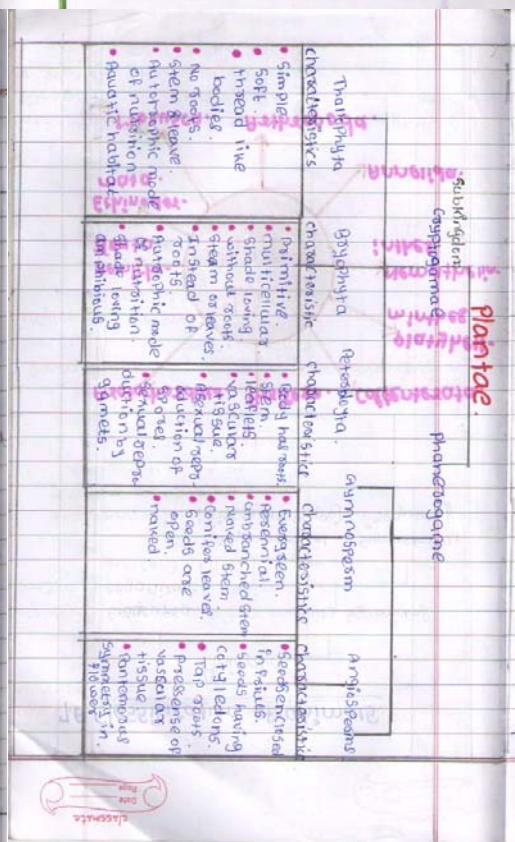 Plantae.
Subkingdom
Cryptogamae
Phanerogame
Thallophyta
characteristics
• Simple
• Soft.
• thread like
bodies.
• No roots.
stem & leave.
• Autotrophic mode
of nutrition
• Aquatic habitat
Bryophyta
characteristic
• Primitive.
• multicellular
• Shade loving
• without roots.
steam or leaves.
• Instead of
roots.
• Autrophic mode
of nutrition.
• Shade loving
amphibious.
Pterodphyta.
characteristics
• Body has roots.
• stem.
leaflets.
• vascular
tissue.
• Asexual repr
oduction of
spores.
• Sexual repro
duction by
gamets.
Gymnosperm
characteristics
• Evergreen.
• Perennial.
• unbranched stem
• Naked stem.
• Conifer leaves.
• Seeds are
open.
• naked
Angiosperms
characteristic
• Seeds enclosed
in fruits.
• Seeds having
cotyledons.
• Tap roots.
• Pressense of
vascular
tissue
• Pantamerous
symmetry in
flower.
classmate
Date
Page